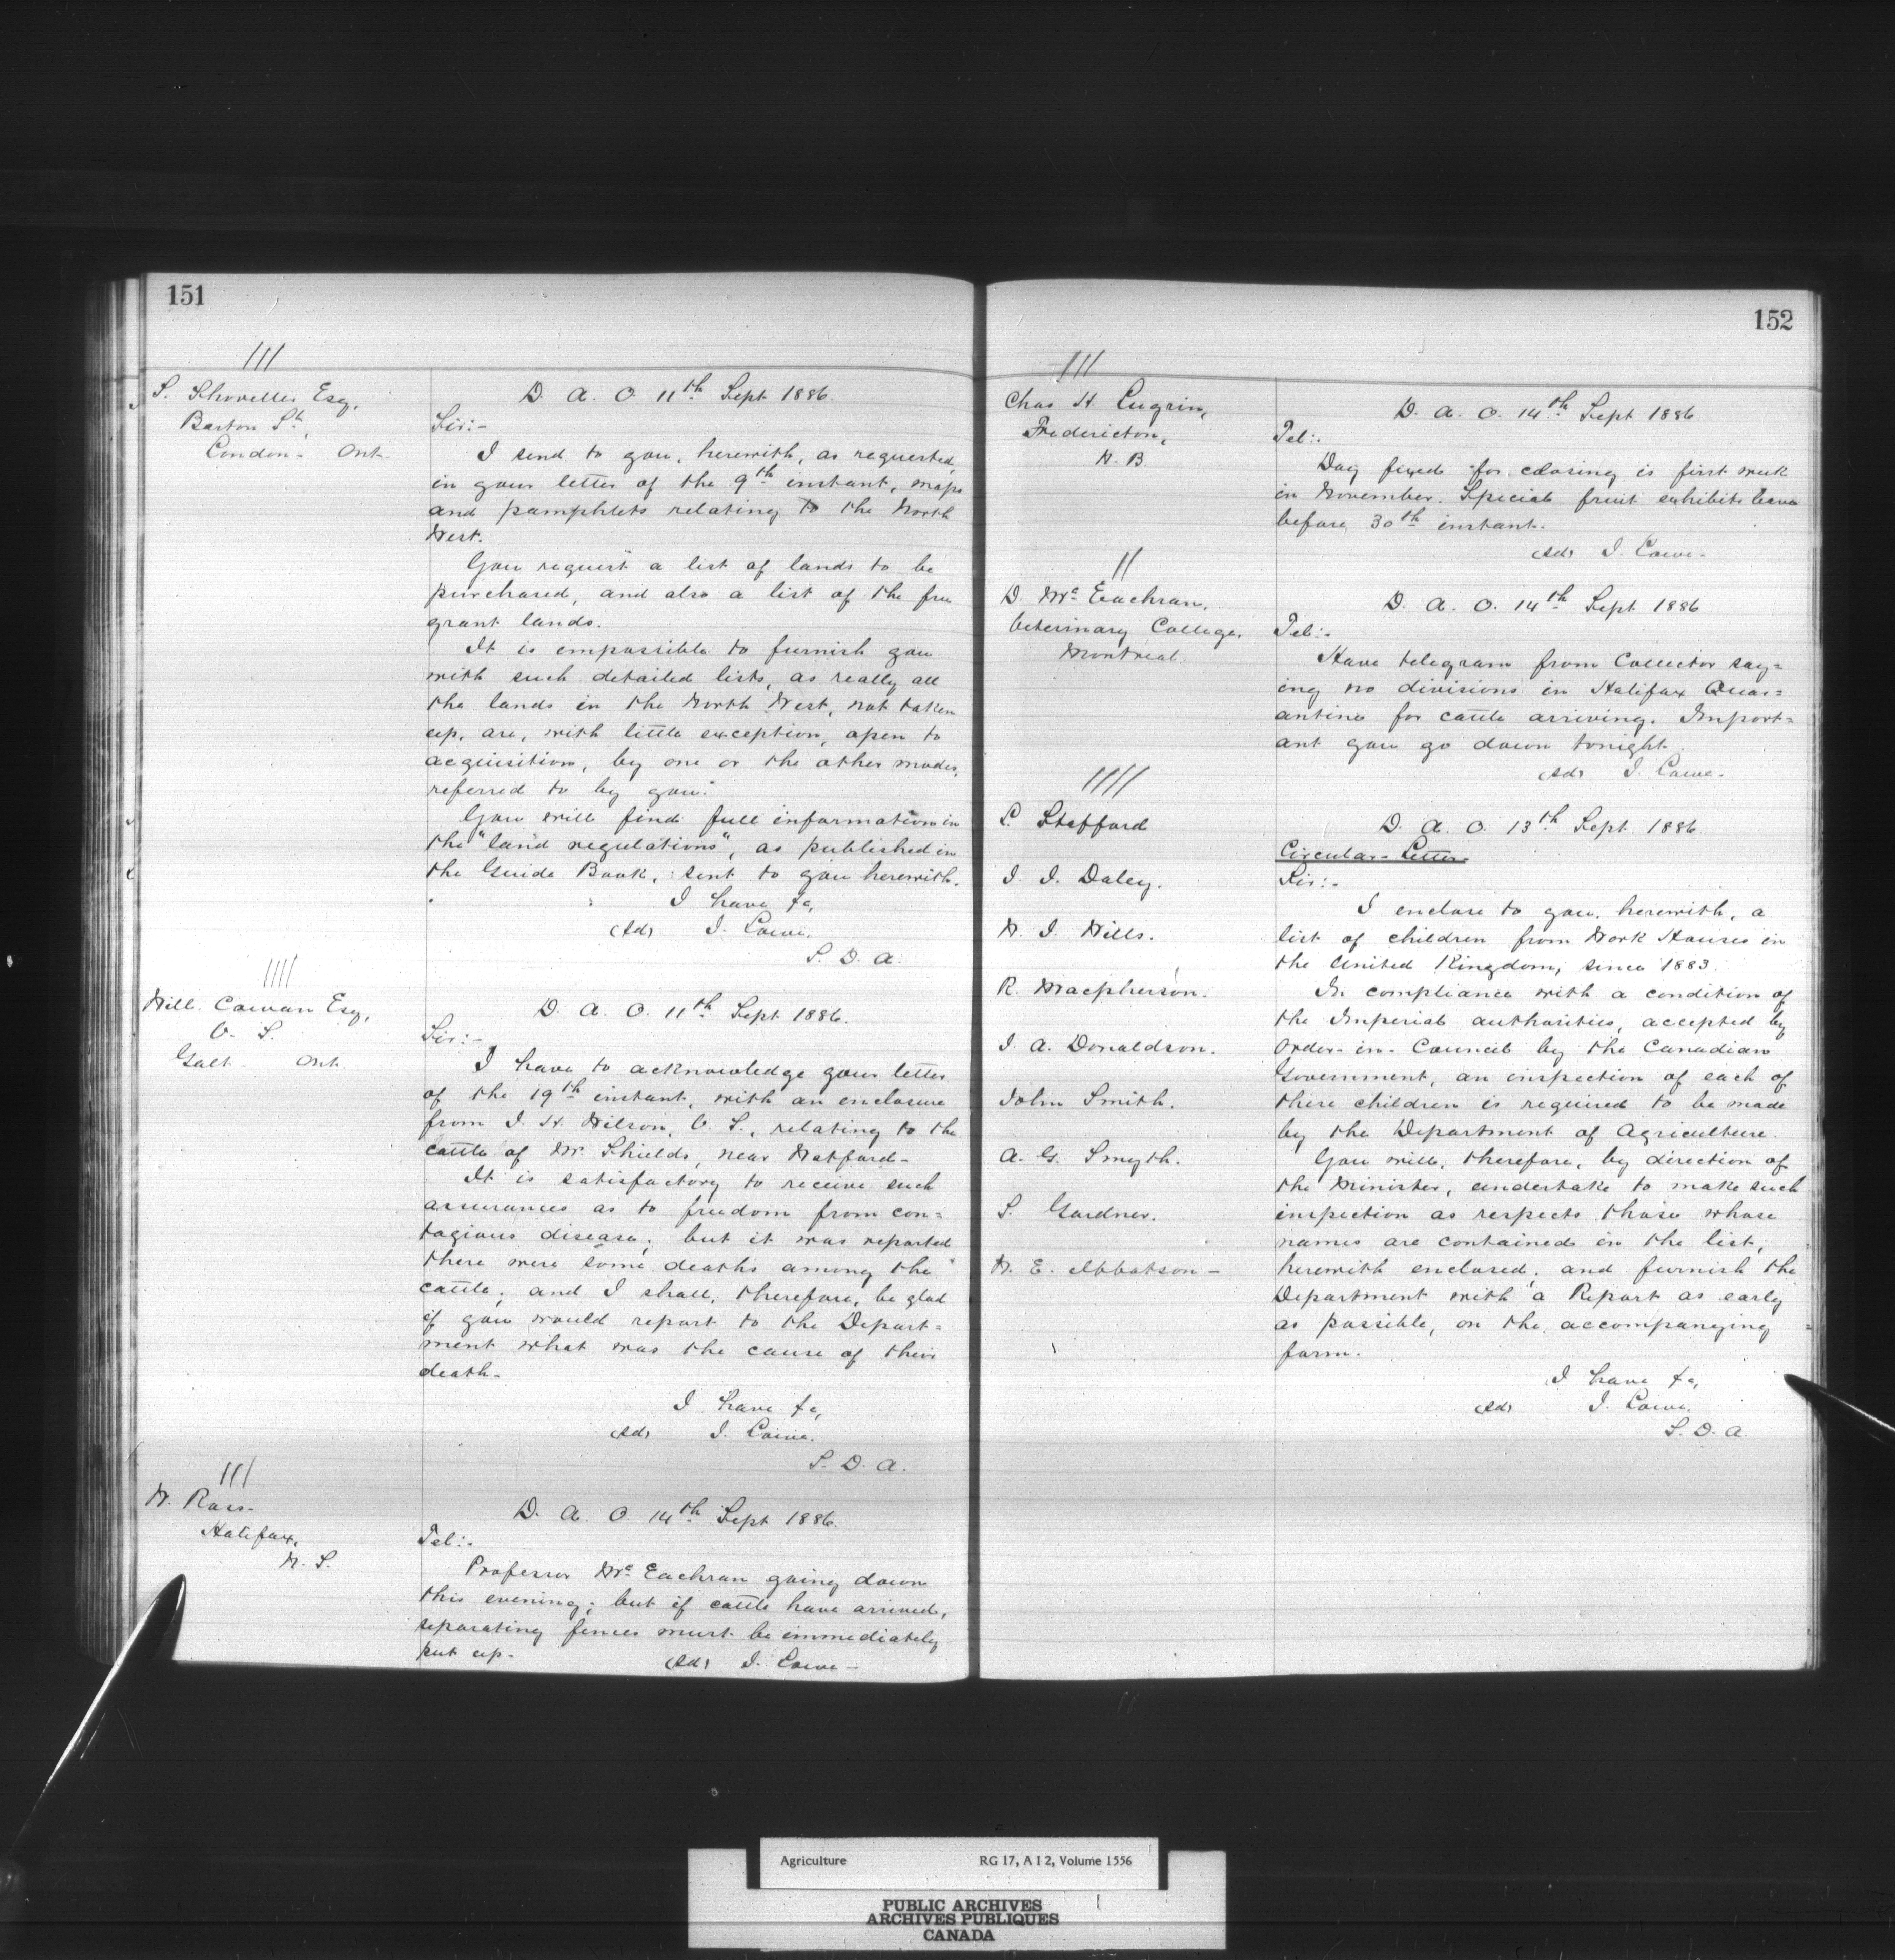 151
///
S. Shoveller Esq,
Barton St,
London - Ont.
D. A. O. 11th Sept 1886.
Sir:-
I send to you, herewith, as requested,
in your letter of the 9th instant, maps
and pamphlets relating to the North
West.
You request a list of lands to be
purchased, and also a list of the free
grant lands.
It is impossible to furnish you
with such detailed lists, as really all
the lands in the North West, not taken
up, are, with little exception, open to
acquisition, by one or the other modes,
referred to by you.
You will find full information in
the "land regulations", as published in
the Guide Book, sent to you herewith.
I have &c,
(Sd) J. Lowe.
S. D. A.
////
Will. Cowan Esq,
V. S.
Galt Ont.
D. A. O. 11th Sept 1886.
Sir:-
I have to acknowledge your letter
of the 19th instant, with an enclosure
from J. H. Wilson, V. S., relating to the
cattle of Mr. Shields, near Watford-
It is satisfactory to receive such
assurances as to freedom from con=
tagious disease; but it was reported
there were some deaths among the
cattle; and I shall, therefore, be glad
if you would report to the Depart=
ment what was the cause of their
death-
I have &c,
(Sd) J. Lowe.
S. D. A.
///
W. Ross-
Halifax,
N. S.
D. A. O. 14th Sept 1886.
Tel:-
Professor Mc Eachran going down
this evening; but if cattle have arrived,
separating fences must be immediately
put up-
(Sd) J. Lowe-
152
///
Chas H. Lugrin,
Fredericton,
N. B.
D. A. O. 14th Sept 1886.
Tel:-
Day fixed for closing is first week
in November. Special fruit exhibits leave
before 30th instant.
(Sd) J. Lowe-
//
D. Mc Eachran,
Veterinary College,
Montreal.
D. A. O. 14th Sept 1886
Tel:-
Have telegram from Collector say=
ing no divisions in Halifax Quar=
antine for cattle arriving. Import=
ant you go down tonight.
(Sd) J. Lowe-
////
L. Stafford
J. J. Daley.
W. J. Wills.
R. Macpherson.
J. A. Donaldson.
John Smith.
A. G. Smyth.
S. Gardner.
W. E. Ibbotson-
D. A. O. 13th Sept 1886
Circular-Letter-
Sir:-
I enclose to you, herewith, a
list of children from Work Houses in
the United Kingdom, since 1883.
In compliance with a condition of
the Imperial authorities, accepted by
Order-in-Council by the Canadian
Government, an inspection of each of
these children is required to be made
by the Department of Agriculture.
You will, therefore, by direction of
the Minister, undertake to make such
inspection as respects those whose
names are contained in the list,
herewith enclosed; and furnish the
Department with a Report as early
as possible, on the accompanying
form.
I have &c,
(Sd) J. Lowe.
S. D. A.
Agriculture RG 17, A I 2, Volume 1556
PUBLIC ARCHIVES
ARCHIVES PUBLIQUES
CANADA